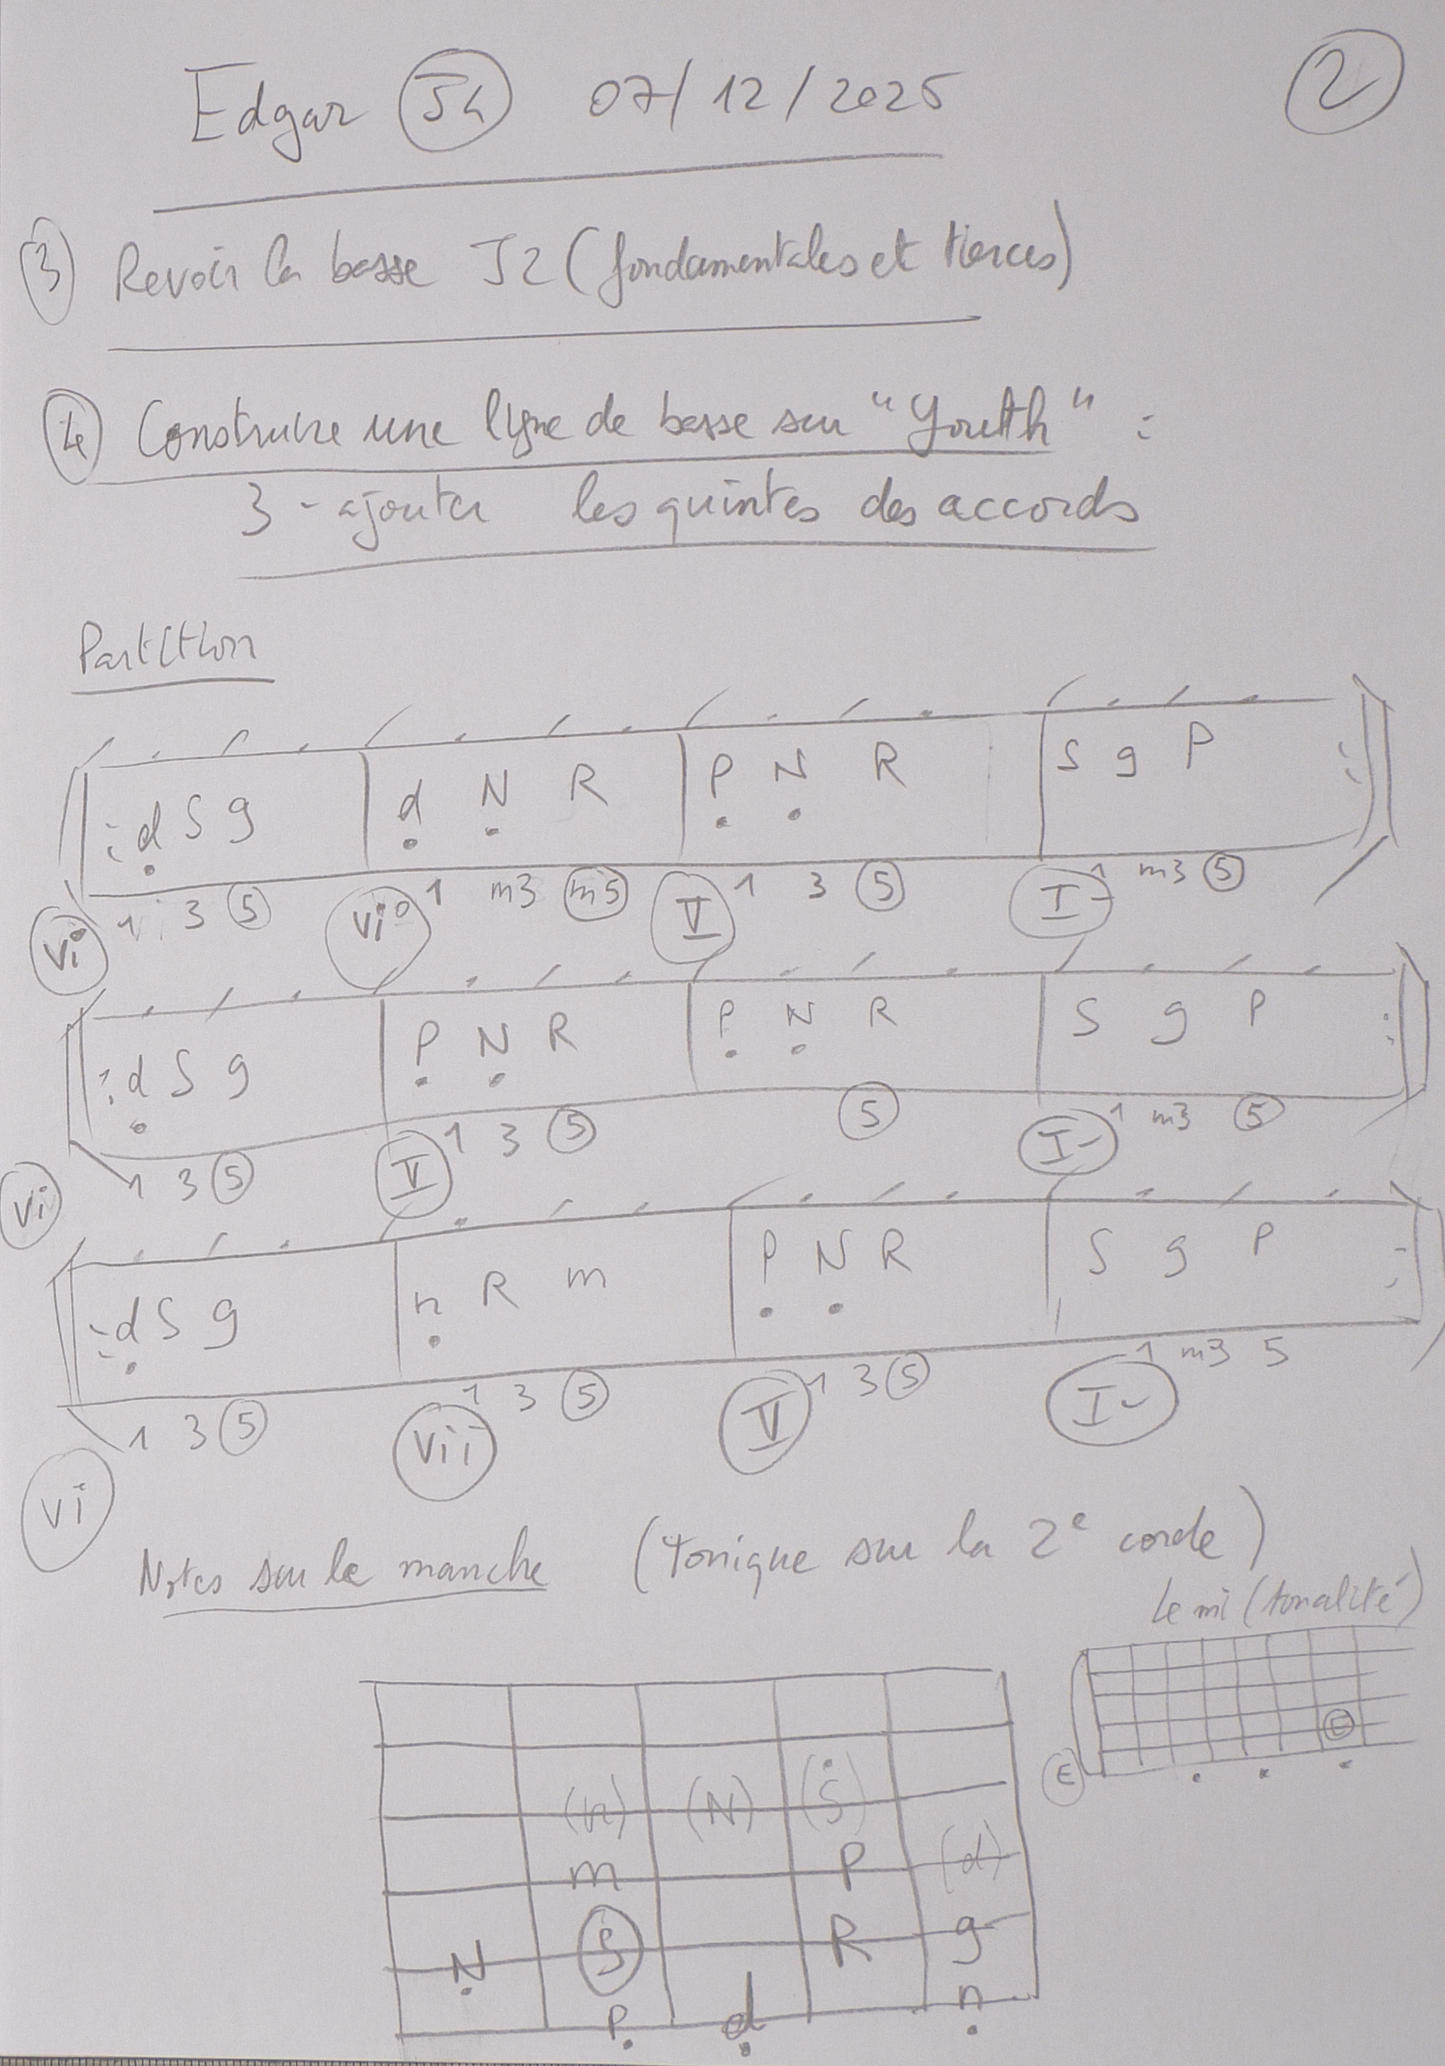 Edgar J4 07/12/2025 2
3 Revoir la basse J2 (fondamentales et tierces)
4 Construire une ligne de basse sur "Youth" :
3 - ajouter les quintes des accords
Partition
: d S g d N R P N R S g P :
vi 1 3 5 vi° 1 m3 m5 V 1 3 5 I- 1 m3 5
: d S g P N R P N R S g P :
vi 1 3 5 V 1 3 5 5 I- 1 m3 5
: d S g n R m P N R S g P :
vi 1 3 5 vii 1 3 5 V 1 3 5 I- 1 m3 5
Notes sur le manche (tonique sur la 2e corde)
Le mi (tonalité)
E E
(n) (N) (S)
m P (d)
N S R g
P d n